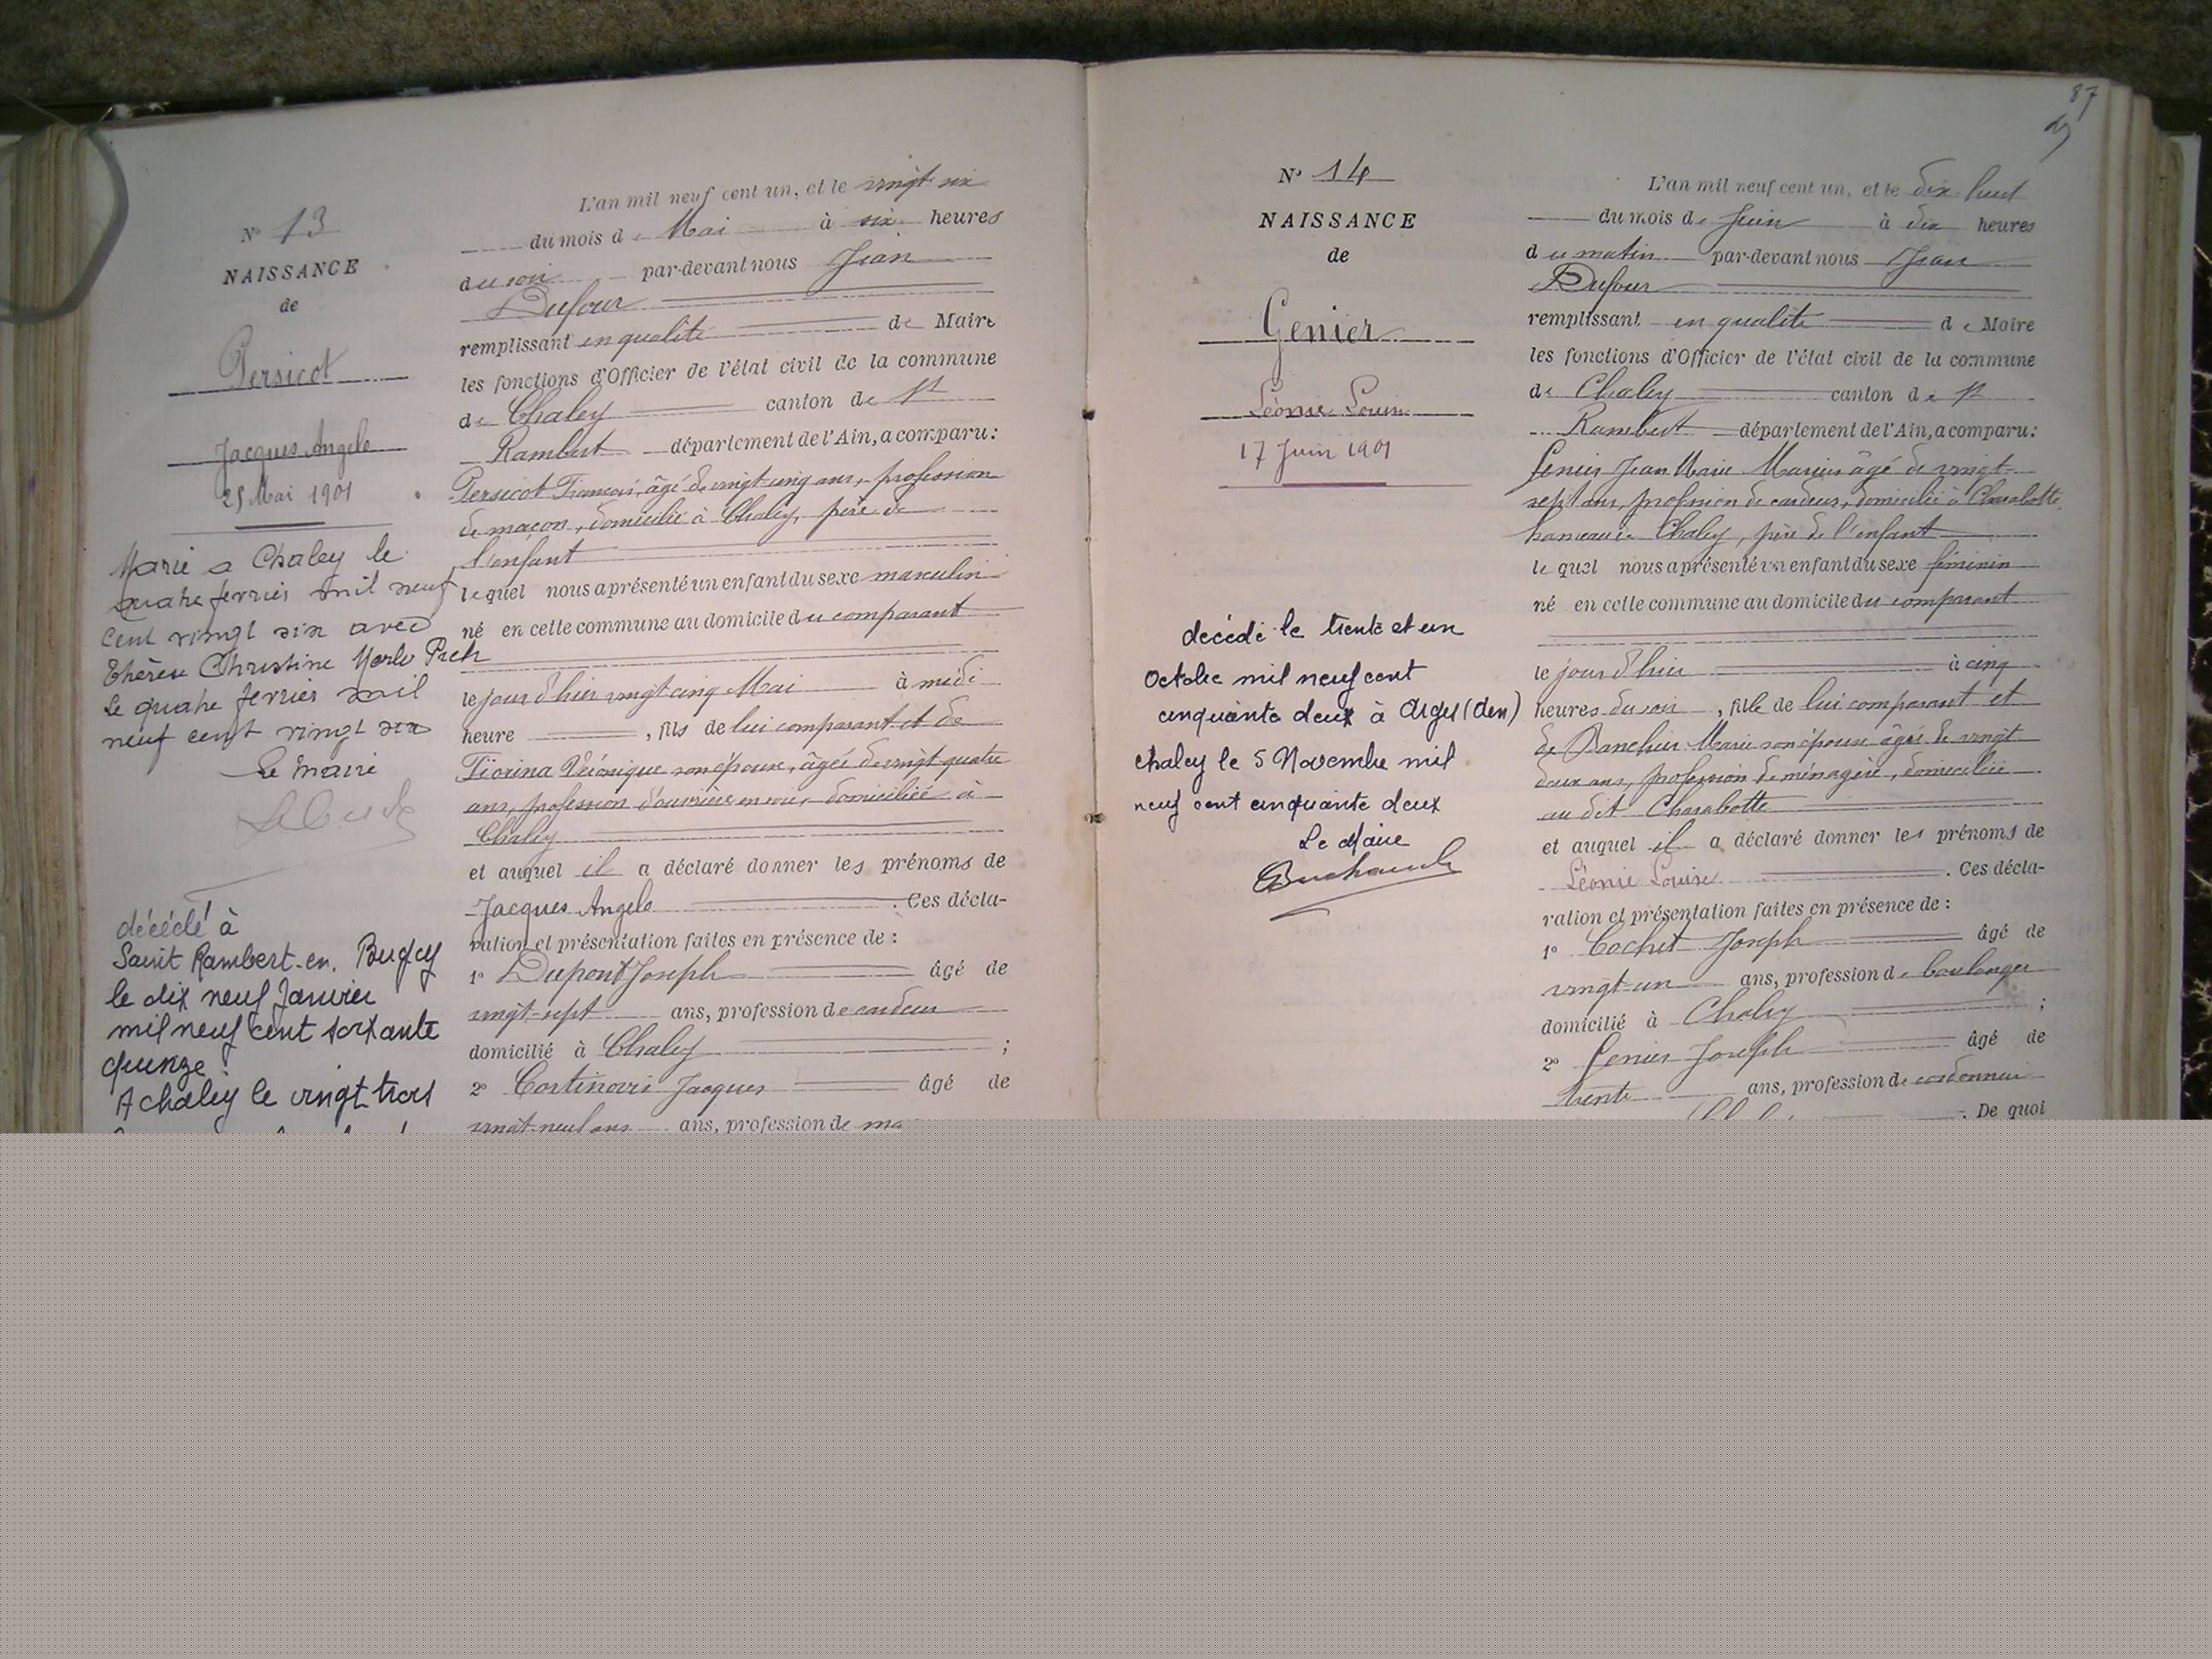 N° 13
NAISSANCE
de
Persicot
Jacques Angelo
25 Mai 1901
Marié a Chaley le
quatre fevrier mil neuf
cent vingt six avec
Thérèse Christine
le quatre fevrier mil
neuf cent vingt six
Le Maire
décédé à
Saint Rambert-en. Bugey
le dix neuf Janvier
mil neuf cent soixante
quinze.
A chaley le vingt trois
L'an mil neuf cent un, et le vingt six
du mois de Mai à six heures
du soir par-devant nous Jean
Dufour
remplissant en qualité de Maire
les fonctions d'Officier de l'état civil de la commune
de Chaley canton de St
Rambert département de l'Ain, a comparu:
Persicot François, âgé de vingt cinq ans, profession
de maçon, domicilié à Chaley, père de
l'enfant
lequel nous a présenté un enfant du sexe masculin
né en cette commune au domicile du comparant
le jour d'hier vingt cinq Mai à midi
heure , fils de lui comparant et de
Fiorina Véronique son épouse, âgée de vingt quatre
ans, profession d'ouvrière en soie, domiciliée à
Chaley
et auquel il a déclaré donner les prénoms de
Jacques Angelo . Ces décla-
ration et présentation faites en présence de :
1° Dupont Joseph âgé de
vingt-sept ans, profession de cardeur
domicilié à Chaley ;
2° Cortinovis Jacques âgé de
vingt-neuf ans ans, profession de ma
87
N° 14
NAISSANCE
de
Genier
Léonie Louise
17 Juin 1901
décédé le trente et un
Octobre mil neuf cent
cinquante deux à
chaley le 5 Novembre mil
neuf cent cinquante deux
Le Maire
L'an mil neuf cent un, et le dix huit
du mois de Juin à dix heures
du matin par-devant nous Jean
Dufour
remplissant en qualité de Maire
les fonctions d'Officier de l'état civil de la commune
de Chaley canton de St
Rambert département de l'Ain, a comparu:
Genier Jean Marie Marius âgé de vingt-
sept ans, profession de cardeur, domicilié à Charabotte,
hameau de Chaley, père de l'enfant
lequel nous a présenté un enfant du sexe féminin
né en cette commune au domicile du comparant
le jour d'hier à cinq
heures du soir , fille de lui comparant et
de Marie son épouse âgée de vingt
deux ans, profession de ménagère, domiciliée
au dit Charabotte
et auquel il a déclaré donner les prénoms de
Léonie Louise . Ces décla-
ration et présentation faites en présence de :
1° Cochet Joseph âgé de
vingt-un ans, profession de boulanger
domicilié à Chaley ;
2° Genier Joseph âgé de
trente ans, profession de cordonnier
. De quoi